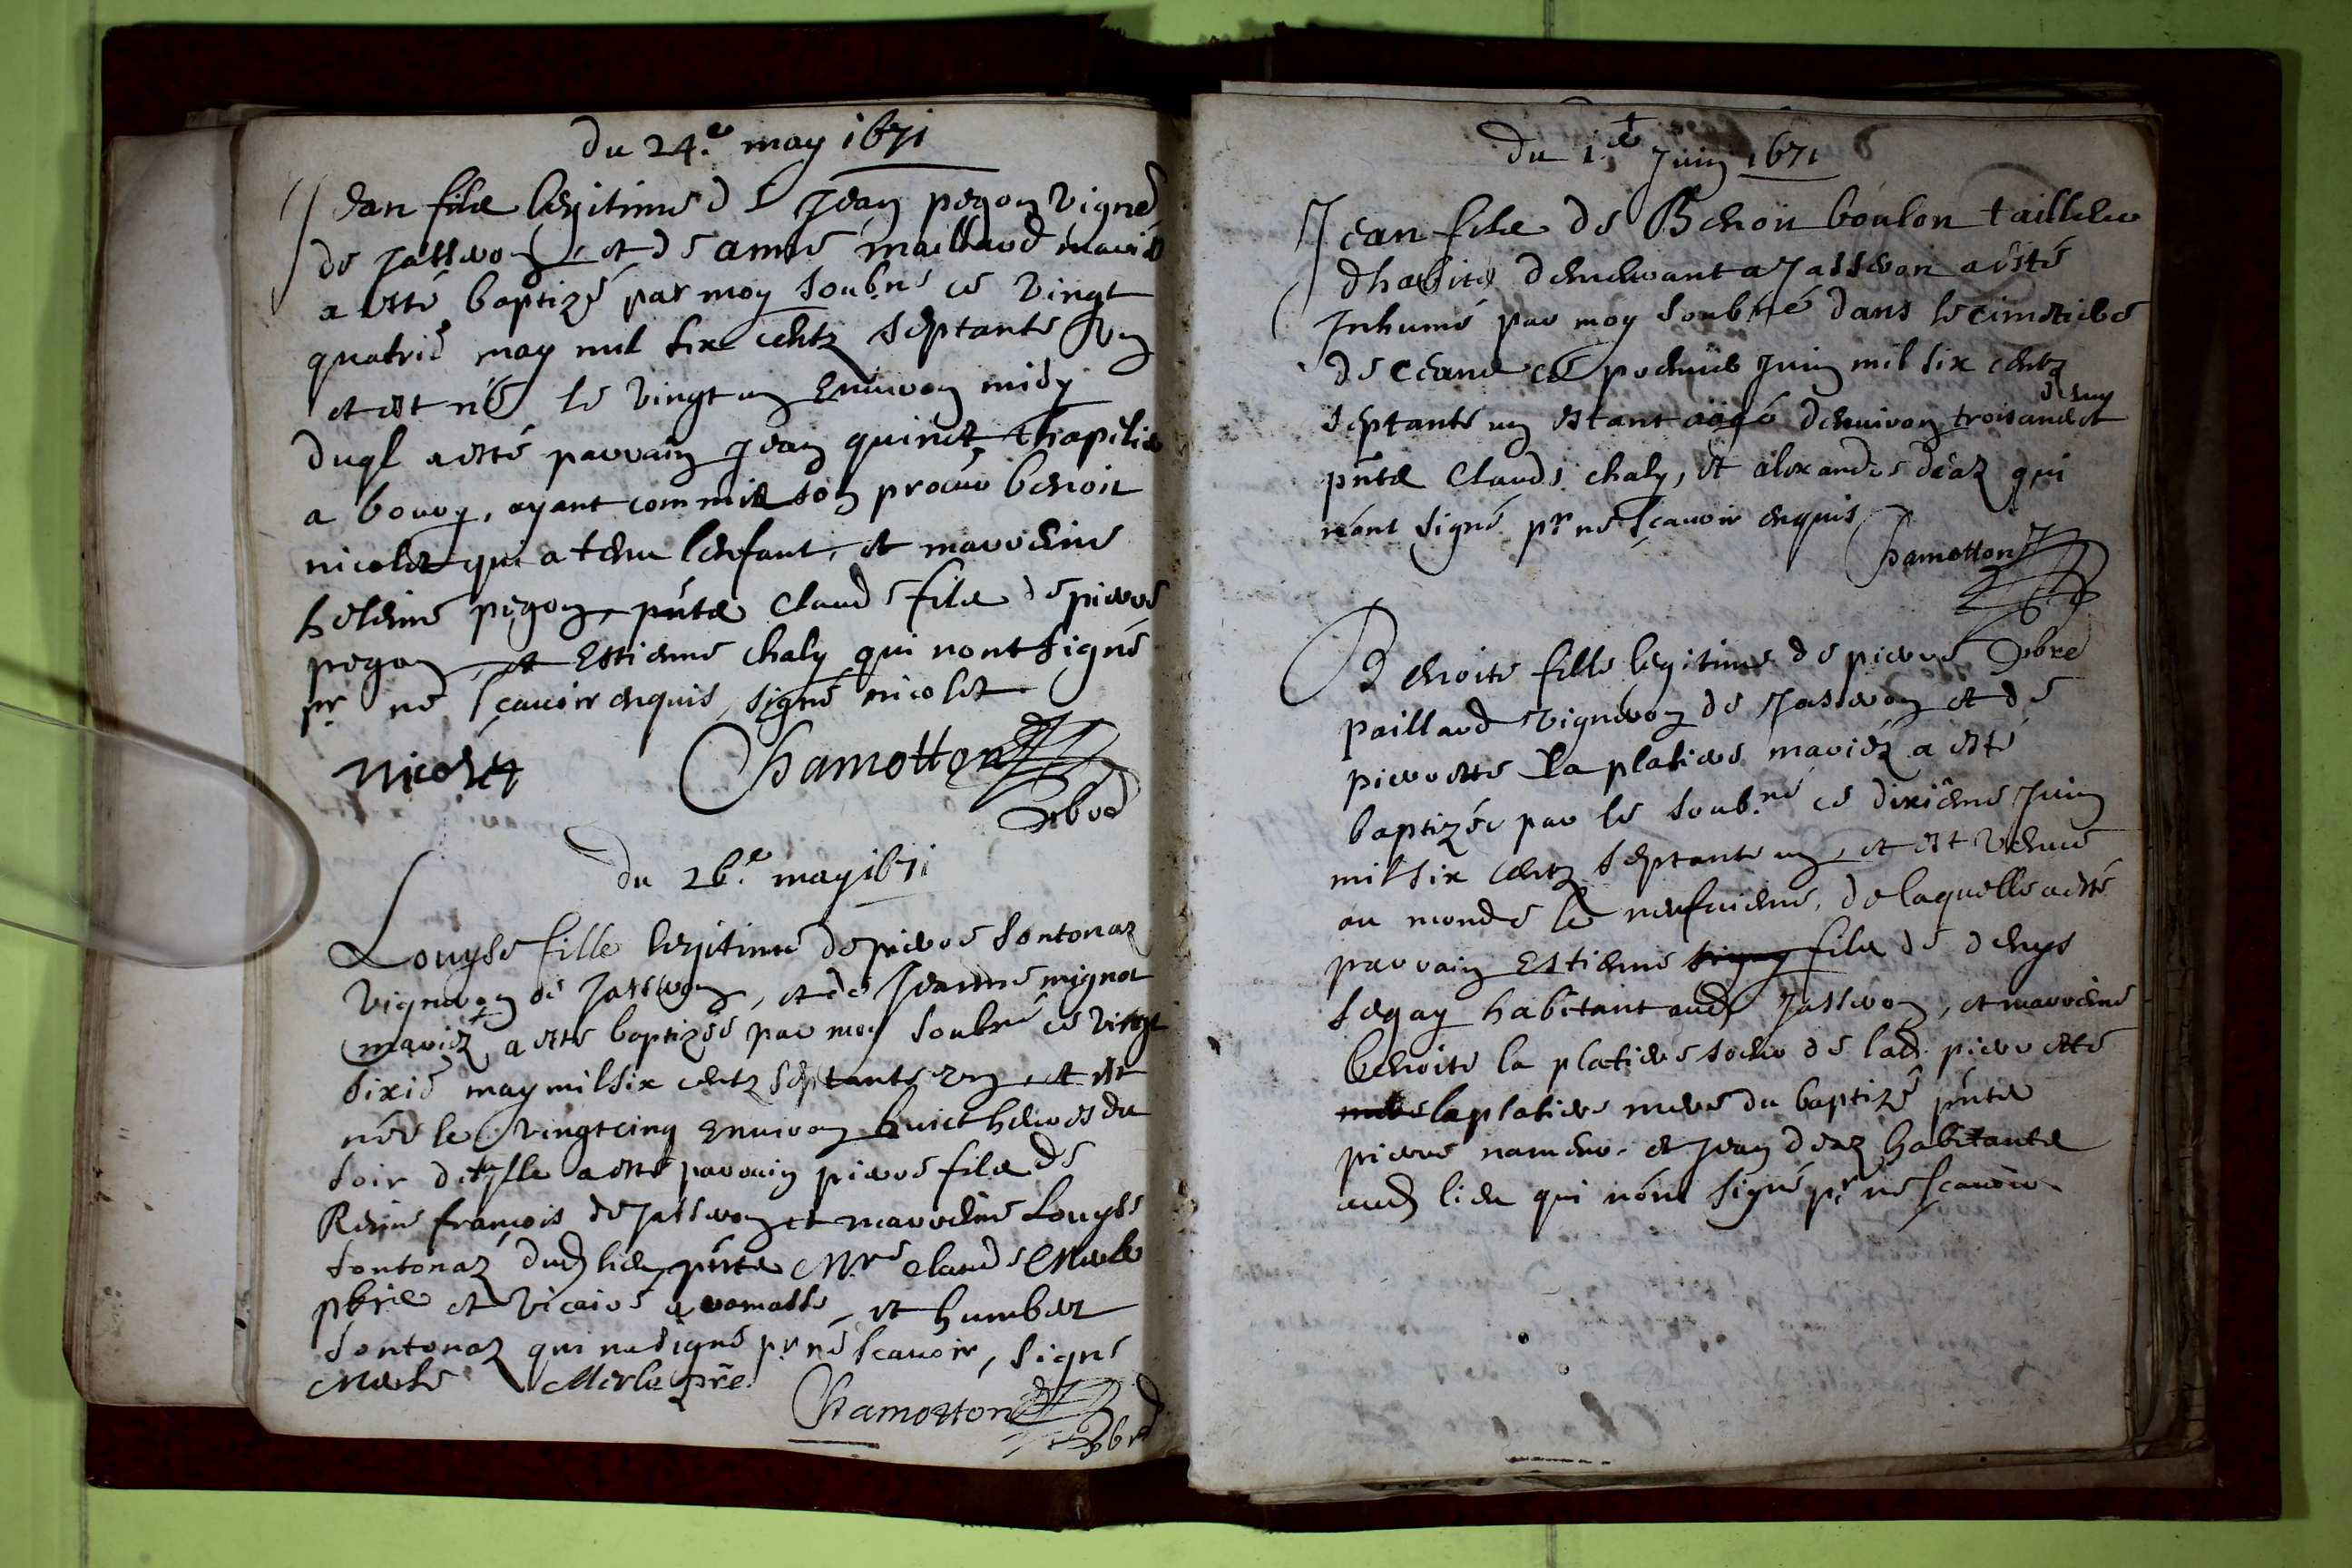 du 24.e may 1671
Jean filz legitime de Jean pegon vigne
de Jasseron, et de amie maillard mariés
a esté baptizé par moy soubné ce vingt
quatrie may mil six centz septante un
et est né le vingt un environ midy
duql a esté parrain Jean quinet, chapelier
a bourg, ayant commis son procur benoit
nicolet qui a tenu lenfant, et marreine
heleine pegon, pnts Claude filz de pierre
pegon, et Estienne chaly qui nont signé
pr ne sçavoir enquis, signé nicolet
Nicolet Chamotton
pbre
du 26.e may 1671
Louyse fille legitime de pierre fontonaz
vigneron de Jasseron, et de Jeanne mignot
mariéz a esté baptizée par moy soubné ce vingt
sixie may mil six centz septante un, et est
née le vingtcinq environ huict heures du
soir de laqlle a esté parrain pierre filz de
Reine françois de Jasseron et marreine Louyse
fontonaz dud lieu, pnts Mre claude Merle
pbre et vicaire a romasse, et humbert
fontonaz qui na signé pr ne scavoir, signé
Merle Merle pre
Chamotton
pbre
du 1.er Juin 1671 †
Jean filz de Benoit boulon tailleur
dhabitz demeurant a Jasseron a esté
Inhumé par moy soubné dans le cimetiere
de ceans ce premier Juin mil six centz
septante un estant aagé denviron trois ans et demy
pnts Claude chaly, et alexandre déaz qui
nont signé pr ne sçavoir enquis
Chamotton
pbre
Benoite fille legitime de pierre
paillard vigneron de Jasseron et de
pierrette La platiere mariéz a esté
baptizée par le soub.né ce dixieme Juin
mil six centz septante un, et est venue
au monde le neufvieme, de laquelle a esté
parrain Estienne filz de denys
segay habitant aud Jasseron, et marreine
benoite la platiere soeur de lad. pierrette
laplatiere mere du baptizé pnts
pierre et Jean deaz habitants
aud lieu qui nont signé pr ne scavoir